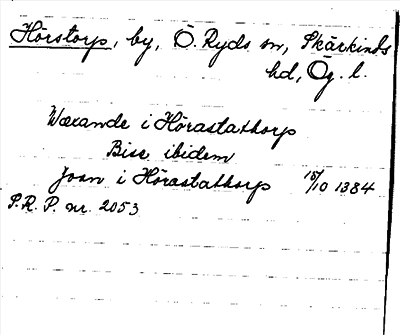 Hörstorp, by, Ö. Ryds sn, Skärkinds
hd, Ög. l.
Wærande i Hörastathorp
Bisse ibidem
Joan i Hörastathorp 15/10 1384
S.R.P. nr. 2053